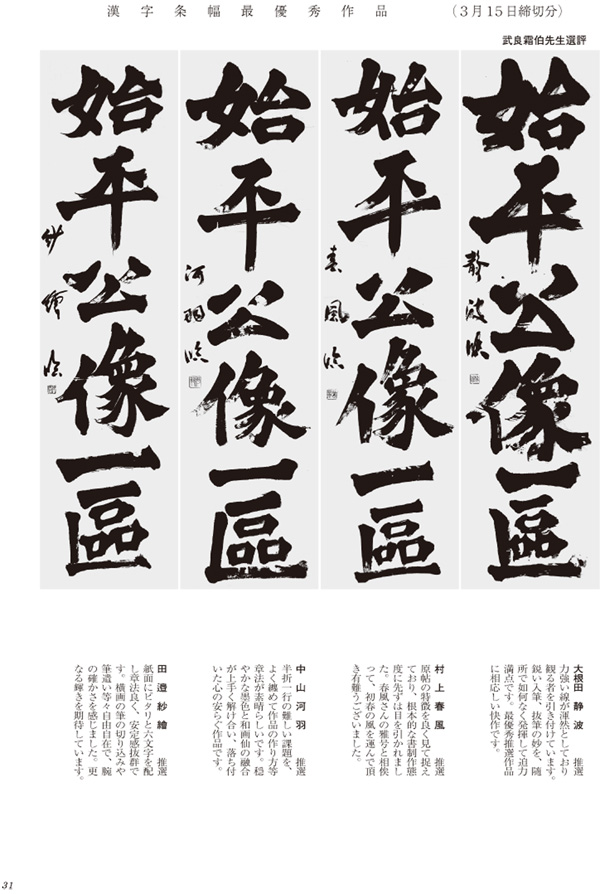 漢字条幅最優秀作品 （3月15日締切分）
武良霜伯先生選評
始平公像一區
静波臨
始平公像一區
春風臨
始平公像一區
河羽臨
始平公像一區
紗繪臨
大根田 静波 推選
力強い線が渾然としており
観る者を引き付けています。
鋭い入筆、抜筆の妙を、随
所で如何なく発揮して迫力
満点です。最優秀推選作品
に相応しい快作です。
村上春風 推選
原帖の特徴を良く見て捉え
ており、根本的な書制作態
度に先ずは目を引かれまし
た。春風さんの雅号と相俟
って、初春の風を運んで頂
き有難うございました。
中山河羽 推選
半折一行の難しい課題を、
よく纏めて作品の作り方等
章法が素晴らしいです。穏
やかな墨色と和画仙の融合
が上手く解け合い、落ち付
いた心の安らぐ作品です。
田邉紗繪 推選
紙面にピタリと六文字を配
し章法良く、安定感抜群で
す。横画の筆の切り込みや
筆遣い等々自由自在で、腕
の確かさを感じました。更
なる輝きを期待しています。
31